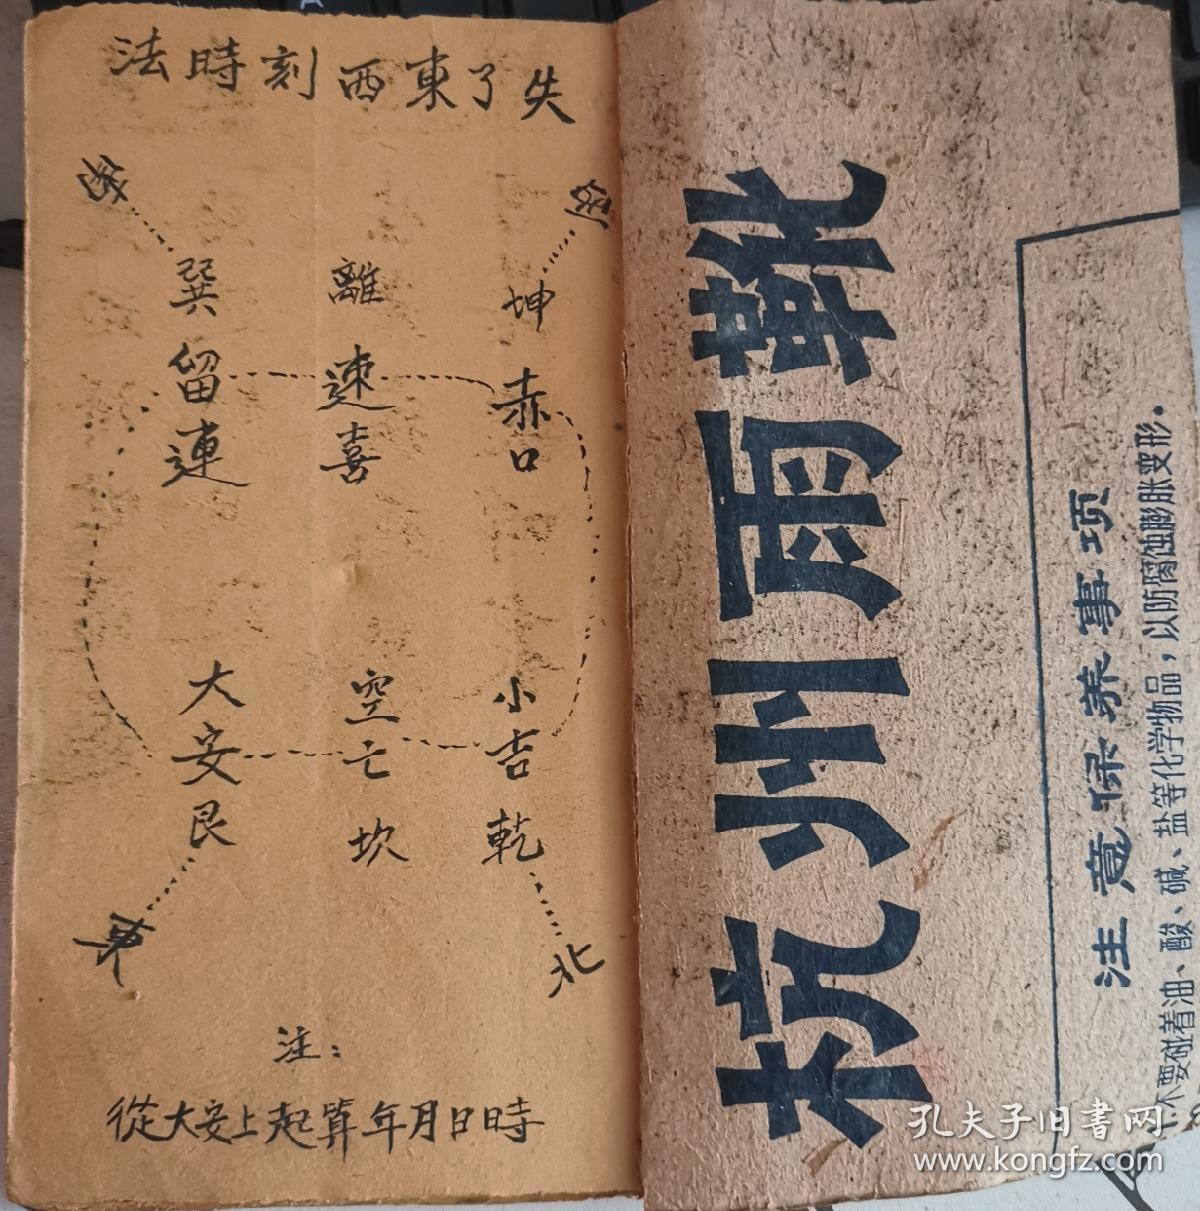 失了東西刻時法
西
南
坤赤口
離速喜
巽留連
小吉乾
空亡坎
大安艮
東
北
注：
從大安上起算年月日時
杭州雨靴
注意保养事项
不要碰着油、酸、碱、盐等化学物品，以防腐蚀膨胀变形。
孔夫子旧书网
www.kongfz.com